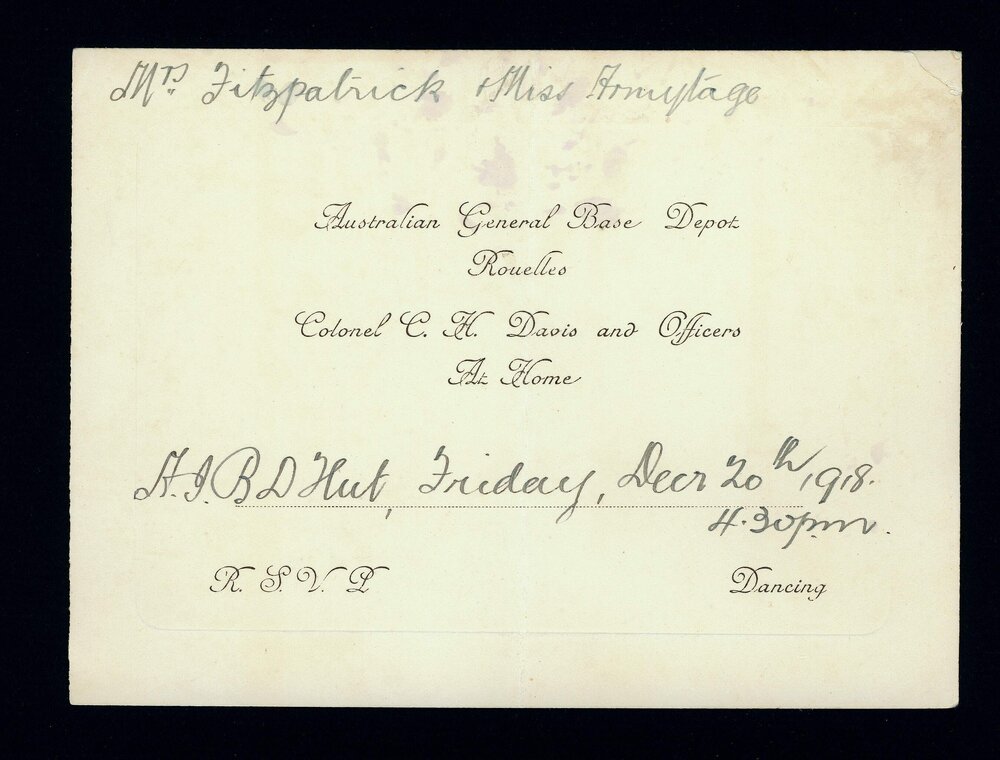 Mrs. Fitzpatrick & Miss Armytage
Australian General Base Depot
Rouelles
Colonel C. H. Davis and Officers
At Home
A.I.B D Hut, Friday, Decr 20th, 1918.
4.30pm.
R. S. V. P
Dancing